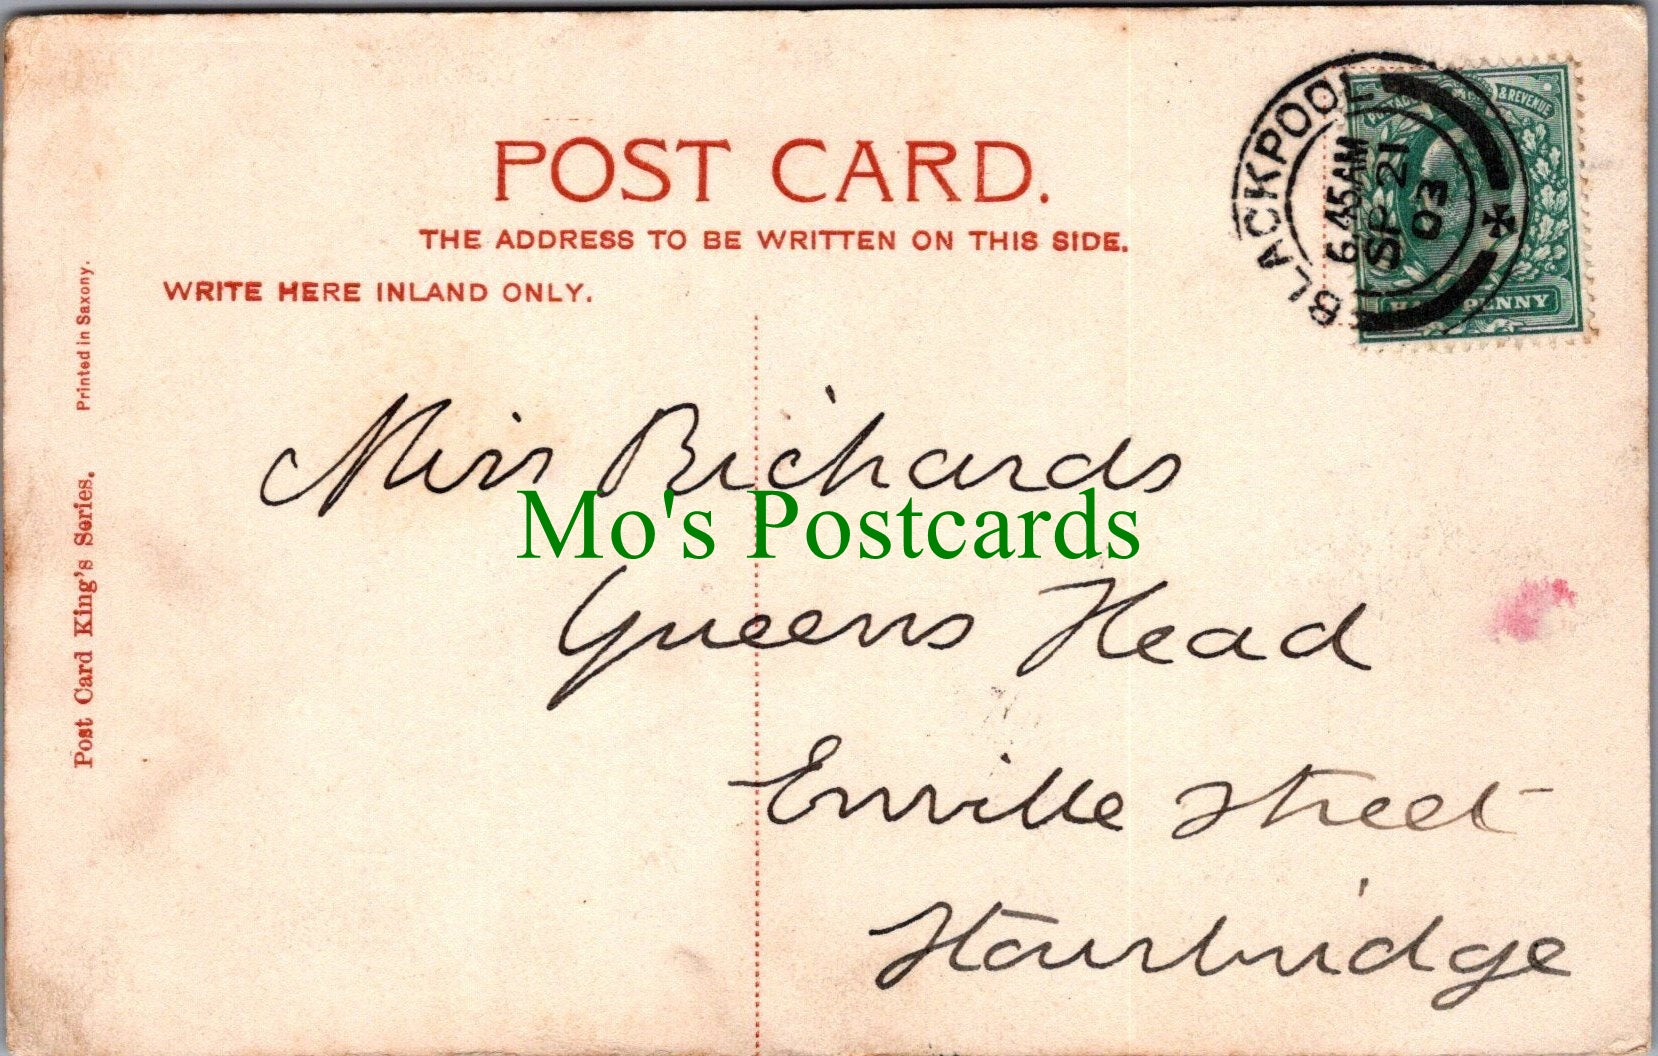 POST CARD.
THE ADDRESS TO BE WRITTEN ON THIS SIDE.
WRITE HERE INLAND ONLY.
BLACKPOOL
6.45AM
SP 21
03
POSTAGE & REVENUE
HALFPENNY
Printed in Saxony.
Post Card King's Series.
Miss Richards
Mo's Postcards
Queens Head
Enville Street
Stourbridge